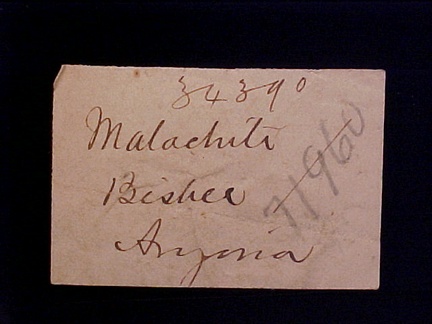 34390
Malachite
Bisbee
Arizona
71960